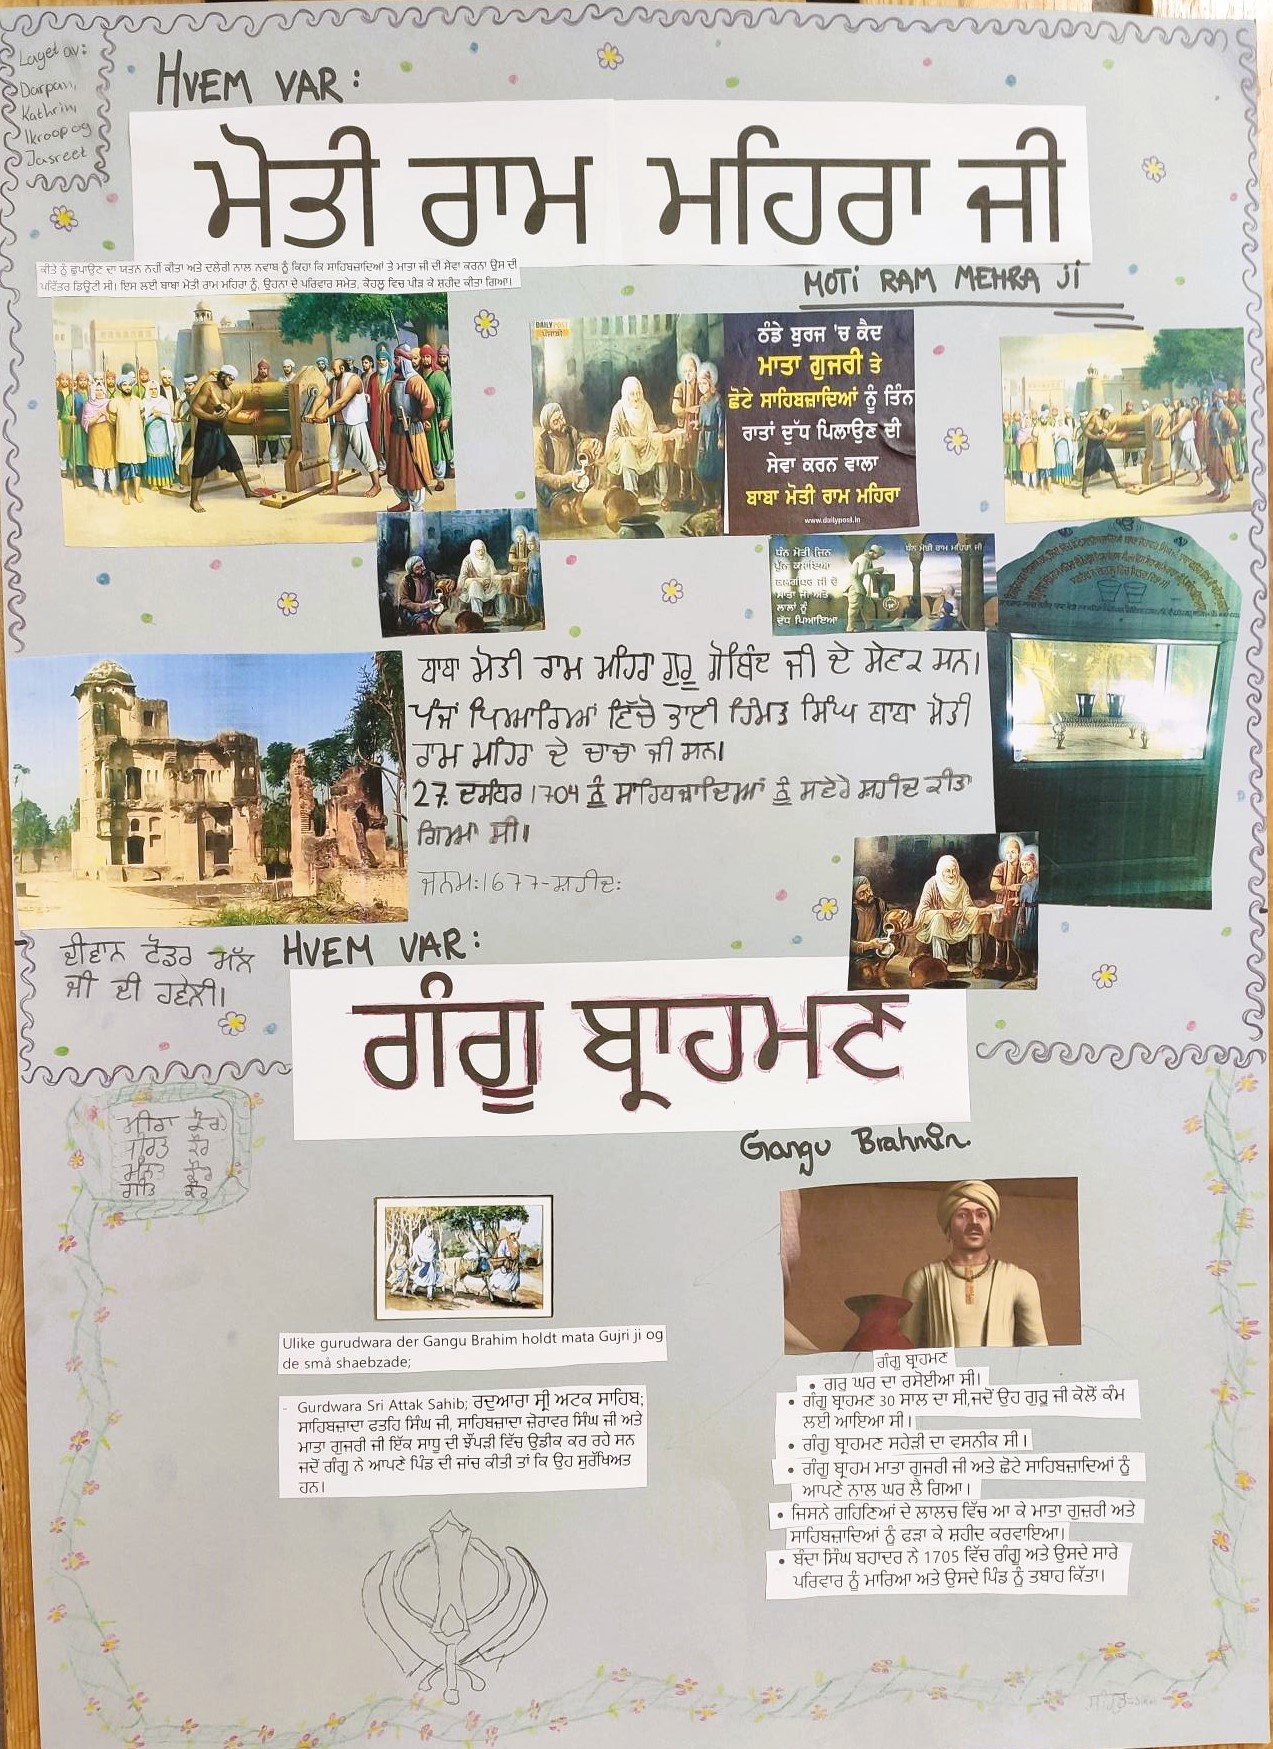 Laget av:
Darpan,
Kathrin,
Ikroop og
Jasreet
HVEM VAR:
ਮੋਤੀ ਰਾਮ ਮਹਿਰਾ ਜੀ
MOTI RAM MEHRA Ji
ਕੀਤੇ ਨੂੰ ਛੁਪਾਉਣ ਦਾ ਯਤਨ ਨਹੀਂ ਕੀਤਾ ਅਤੇ ਦਲੇਰੀ ਨਾਲ ਨਵਾਬ ਨੂੰ ਕਿਹਾ ਕਿ ਸਾਹਿਬਜ਼ਾਦਿਆਂ ਤੇ ਮਾਤਾ ਜੀ ਦੀ ਸੇਵਾ ਕਰਨਾ ਉਸ ਦੀ
ਪਵਿੱਤਰ ਡਿਊਟੀ ਸੀ। ਇਸ ਲਈ ਬਾਬਾ ਮੋਤੀ ਰਾਮ ਮਹਿਰਾ ਨੂੰ, ਉਹਨਾ ਦੇ ਪਰਿਵਾਰ ਸਮੇਤ, ਕੋਹਲੂ ਵਿਚ ਪੀੜ ਕੇ ਸ਼ਹੀਦ ਕੀਤਾ ਗਿਆ।
DAILY POST
ਪੰਜਾਬੀ
ਠੰਡੇ ਬੁਰਜ 'ਚ ਕੈਦ
ਮਾਤਾ ਗੁਜਰੀ ਤੇ
ਛੋਟੇ ਸਾਹਿਬਜ਼ਾਦਿਆਂ ਨੂੰ ਤਿੰਨ
ਰਾਤਾਂ ਦੁੱਧ ਪਿਲਾਉਣ ਦੀ
ਸੇਵਾ ਕਰਨ ਵਾਲਾ
ਬਾਬਾ ਮੋਤੀ ਰਾਮ ਮਹਿਰਾ
www.dailypost.in
ਧੰਨ ਮੋਤੀ ਜਿਨ
ਪੁੰਨ ਕਮਾਇਆ
ਕਲਗੀਧਰ ਜੀ ਦੇ
ਮਾਤਾ ਜੀ ਅਤੇ
ਲਾਲਾਂ ਨੂੰ
ਦੁੱਧ ਪਿਆਇਆ
ਧੰਨ ਮੋਤੀ ਰਾਮ ਮਹਿਰਾ ਜੀ
ਬਾਬਾ ਮੋਤੀ ਰਾਮ ਮਹਿਰਾ ਗੁਰੂ ਗੋਬਿੰਦ ਜੀ ਦੇ ਸੇਵਕ ਸਨ।
ਪੰਜਾਂ ਪਿਆਰਿਆਂ ਵਿੱਚੋਂ ਭਾਈ ਹਿੰਮਤ ਸਿੰਘ ਬਾਬਾ ਮੋਤੀ
ਰਾਮ ਮਹਿਰਾ ਦੇ ਚਾਚਾ ਜੀ ਸਨ।
27. ਦਸੰਬਰ 1704 ਨੂੰ ਸਾਹਿਬਜ਼ਾਦਿਆਂ ਨੂੰ ਸਵੇਰੇ ਸ਼ਹੀਦ ਕੀਤਾ
ਗਿਆ ਸੀ।
ਜਨਮ:1677-ਸ਼ਹੀਦ:
ਦੀਵਾਨ ਟੋਡਰ ਮੱਲ
ਜੀ ਦੀ ਹਵੇਲੀ।
HVEM VAR:
ਗੰਗੂ ਬ੍ਰਾਹਮਣ
Gangu Brahmin
ਮੀਰਾ ਕੌਰ
ਕੌਰ
ਮੰਨਤ ਕੌਰ
ਕੌਰ
Ulike gurudwara der Gangu Brahim holdt mata Gujri ji og
de små shaebzade;
- Gurdwara Sri Attak Sahib; ਰਦੁਆਰਾ ਸ੍ਰੀ ਅਟਕ ਸਾਹਿਬ;
ਸਾਹਿਬਜ਼ਾਦਾ ਫਤਹਿ ਸਿੰਘ ਜੀ, ਸਾਹਿਬਜ਼ਾਦਾ ਜ਼ੋਰਾਵਰ ਸਿੰਘ ਜੀ ਅਤੇ
ਮਾਤਾ ਗੁਜਰੀ ਜੀ ਇੱਕ ਸਾਧੂ ਦੀ ਝੌਂਪੜੀ ਵਿੱਚ ਉਡੀਕ ਕਰ ਰਹੇ ਸਨ
ਜਦੋਂ ਗੰਗੂ ਨੇ ਆਪਣੇ ਪਿੰਡ ਦੀ ਜਾਂਚ ਕੀਤੀ ਤਾਂ ਕਿ ਉਹ ਸੁਰੱਖਿਅਤ
ਹਨ।
ਗੰਗੂ ਬ੍ਰਾਹਮਣ
• ਗਰੁ ਘਰ ਦਾ ਰਸੋਈਆ ਸੀ।
• ਗੰਗੂ ਬ੍ਰਾਹਮਣ 30 ਸਾਲ ਦਾ ਸੀ,ਜਦੋਂ ਉਹ ਗੁਰੂ ਜੀ ਕੋਲੋਂ ਕੰਮ
ਲਈ ਆਇਆ ਸੀ।
• ਗੰਗੂ ਬ੍ਰਾਹਮਣ ਸਹੇੜੀ ਦਾ ਵਸਨੀਕ ਸੀ।
• ਗੰਗੂ ਬ੍ਰਾਹਮ ਮਾਤਾ ਗੁਜਰੀ ਜੀ ਅਤੇ ਛੋਟੇ ਸਾਹਿਬਜ਼ਾਦਿਆਂ ਨੂੰ
ਆਪਣੇ ਨਾਲ ਘਰ ਲੈ ਗਿਆ।
• ਜਿਸਨੇ ਗਹਿਣਿਆਂ ਦੇ ਲਾਲਚ ਵਿੱਚ ਆ ਕੇ ਮਾਤਾ ਗੁਜ਼ਰੀ ਅਤੇ
ਸਾਹਿਬਜ਼ਾਦਿਆਂ ਨੂੰ ਫੜਾ ਕੇ ਸ਼ਹੀਦ ਕਰਵਾਇਆ।
• ਬੰਦਾ ਸਿੰਘ ਬਹਾਦਰ ਨੇ 1705 ਵਿੱਚ ਗੰਗੂ ਅਤੇ ਉਸਦੇ ਸਾਰੇ
ਪਰਿਵਾਰ ਨੂੰ ਮਾਰਿਆ ਅਤੇ ਉਸਦੇ ਪਿੰਡ ਨੂੰ ਤਬਾਹ ਕਿੱਤਾ।